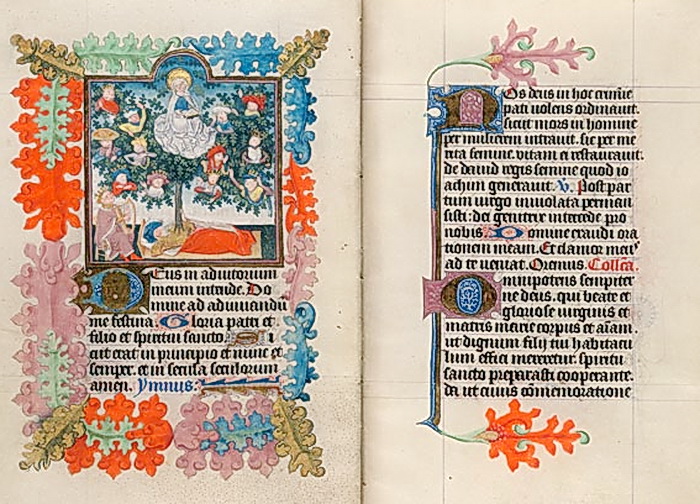 Deus in adiutorium
meum intende. Do
mine ad adiuvandu
me festina. Gloria patri et
filio et spiritui sancto. Si
cut erat in principio et nunc et
semper. et in secula seculorum
amen. Ymnus.
os deus in hoc
pati volens ordinavit.
sicut mors in homine
per mulierem intravit. sic per me
rita femine. vitam et restauravit.
de david regis semine quod io
achim generavit. V. Post par
tum virgo inviolata perman
sisti: dei genitrix intercede pro
nobis. Domine exaudi ora
tionem meam. Et clamor meus
ad te veniat. Oremus. Collecta.
Omnipotens sempiter
ne deus. qui beate et
gloriose virginis et
matris marie corpus et aiam.
ut dignum filii tui habitacu
lum effici mereretur. spiritu
sancto preparasti cooperante.
da ut cuius comemoratione